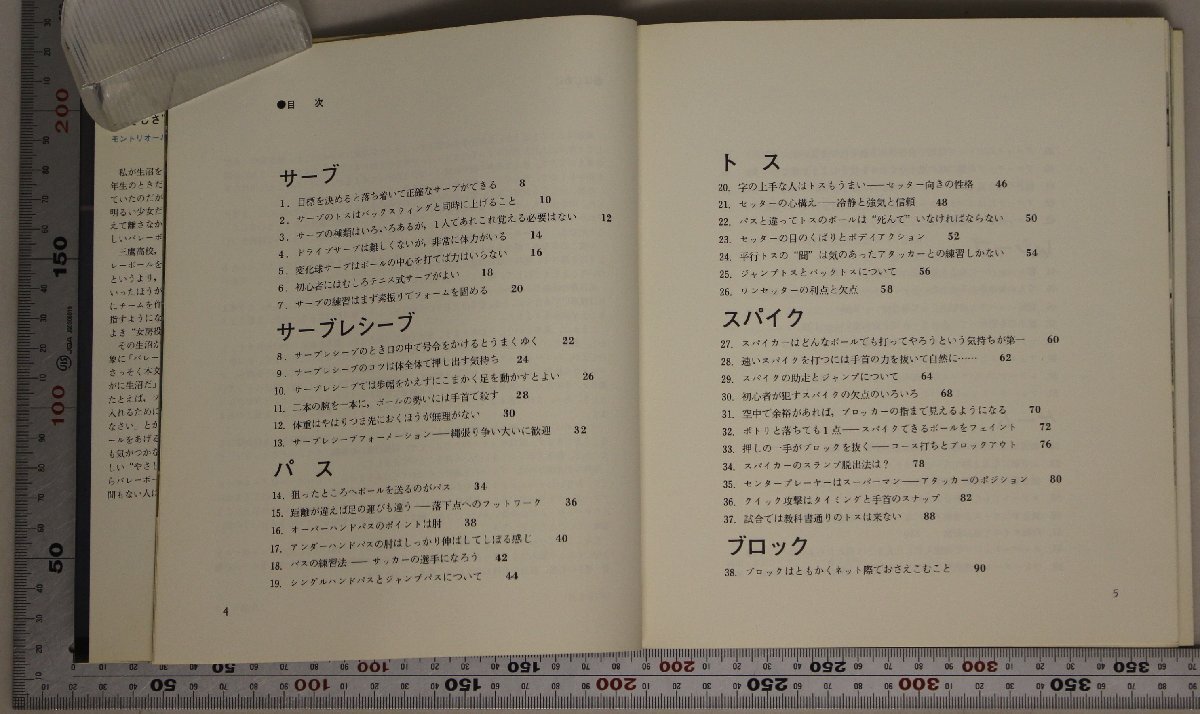 ●目 次
サーブ
1. 目標を決めると落ち着いて正確なサーブができる 8
2. サーブのトスはバックスウィングと同時に上げること 10
3. サーブの種類はいろいろあるが,1人であれこれ覚える必要はない 12
4. ドライブサーブは難しくないが,非常に体力がいる 14
5. 変化球サーブはボールの中心を打てば力はいらない 16
6. 初心者にはむしろテニス式サーブがよい 18
7. サーブの練習はまず素振りでフォームを固める 20
サーブレシーブ
8. サーブレシーブのとき口の中で号令をかけるとうまくゆく 22
9. サーブレシーブのコツは体全体で押し出す気持ち 24
10. サーブレシーブでは歩幅をかえずにこまかく足を動かすとよい 26
11. 二本の腕を一本に,ボールの勢いには手首で殺す 28
12. 体重はやはりつま先におくほうが無理がない 30
13. サーブレシーブフォーメーション——縄張り争い大いに歓迎 32
パ ス
14. 狙ったところへボールを送るのがパス 34
15. 距離が違えば足の運びも違う——落下点へのフットワーク 36
16. オーバーハンドパスのポイントは肘 38
17. アンダーハンドパスの肘はしっかり伸ばしてしぼる感じ 40
18. パスの練習法——サッカーの選手になろう 42
19. シングルハンドパスとジャンプパスについて 44
4
ト ス
20. 字の上手な人はトスもうまい——セッター向きの性格 46
21. セッターの心構え——冷静と強気と信頼 48
22. パスと違ってトスのボールは“死んで”いなければならない 50
23. セッターの目のくばりとボディアクション 52
24. 平行トスの“間”は気のあったアタッカーとの練習しかない 54
25. ジャンプトスとバックトスについて 56
26. ワンセッターの利点と欠点 58
スパイク
27. スパイカーはどんなボールでも打ってやろうという気持が第一 60
28. 速いスパイクを打つには手首の力を抜いて自然に…… 62
29. スパイクの助走とジャンプについて 64
30. 初心者が犯すスパイクの欠点のいろいろ 68
31. 空中で余裕があれば,ブロッカーの指まで見えるようになる 70
32. ポトリと落ちても1点——スパイクできるボールをフェイント 72
33. 押しの一手がブロックを抜く——コース打ちとブロックアウト 76
34. スパイカーのスランプ脱出法は? 78
35. センタープレーヤーはスーパーマン——アタッカーのポジション 80
36. クイック攻撃はタイミングと手首のスナップ 82
37. 試合では教科書通りのトスは来ない 88
ブロック
38. ブロックはともかくネット際でおさえこむこと 90
5